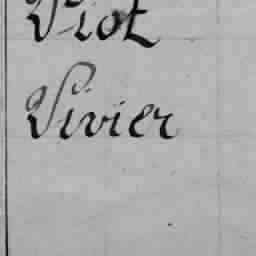 Viot
Vivier